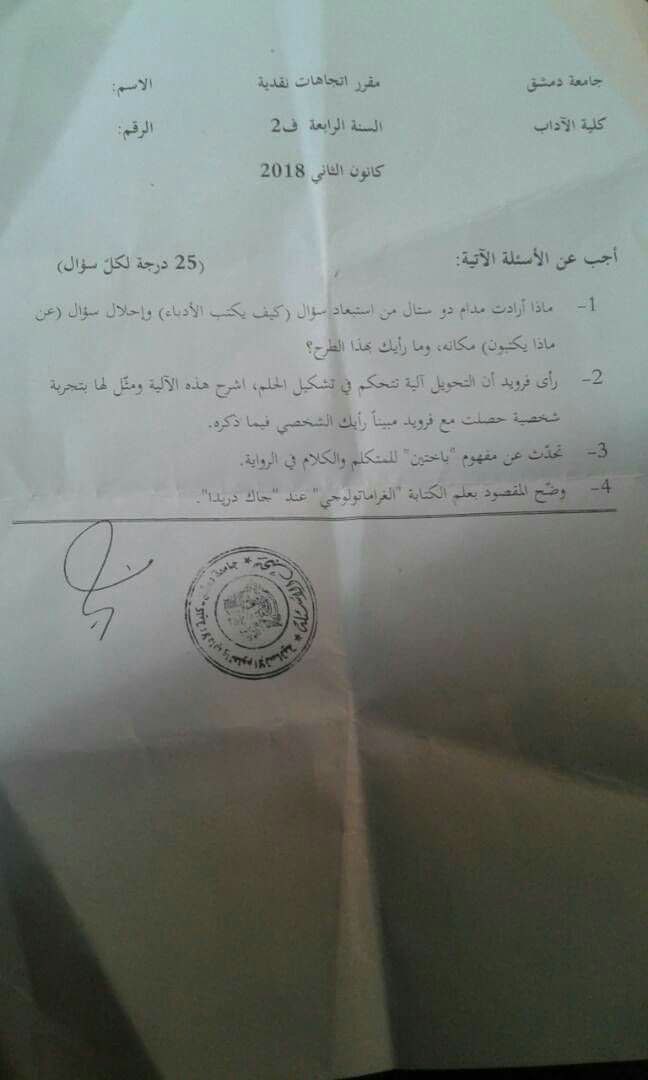 جامعة دمشق مقرر اتجاهات نقدية الاسم:
كلية الآداب السنة الرابعة ف2 الرقم:
كانون الثاني 2018
أجب عن الأسئلة الآتية: (25 درجة لكلّ سؤال)
1- ماذا أرادت مدام دو ستال من استبعاد سؤال (كيف يكتب الأدباء) وإحلال سؤال (عن
ماذا يكتبون) مكانه، وما رأيك بهذا الطرح؟
2- رأى فرويد أن التحويل آلية تتحكم في تشكيل الحلم، اشرح هذه الآلية ومثّل لها بتجربة
شخصية حصلت مع فرويد مبيناً رأيك الشخصي فيما ذكره.
3- تحدّث عن مفهوم "باختين" للمتكلم والكلام في الرواية.
4- وضّح المقصود بعلم الكتابة "الغراماتولوجي" عند "جاك دريدا".
كلية الآداب والعلوم الإنسانية